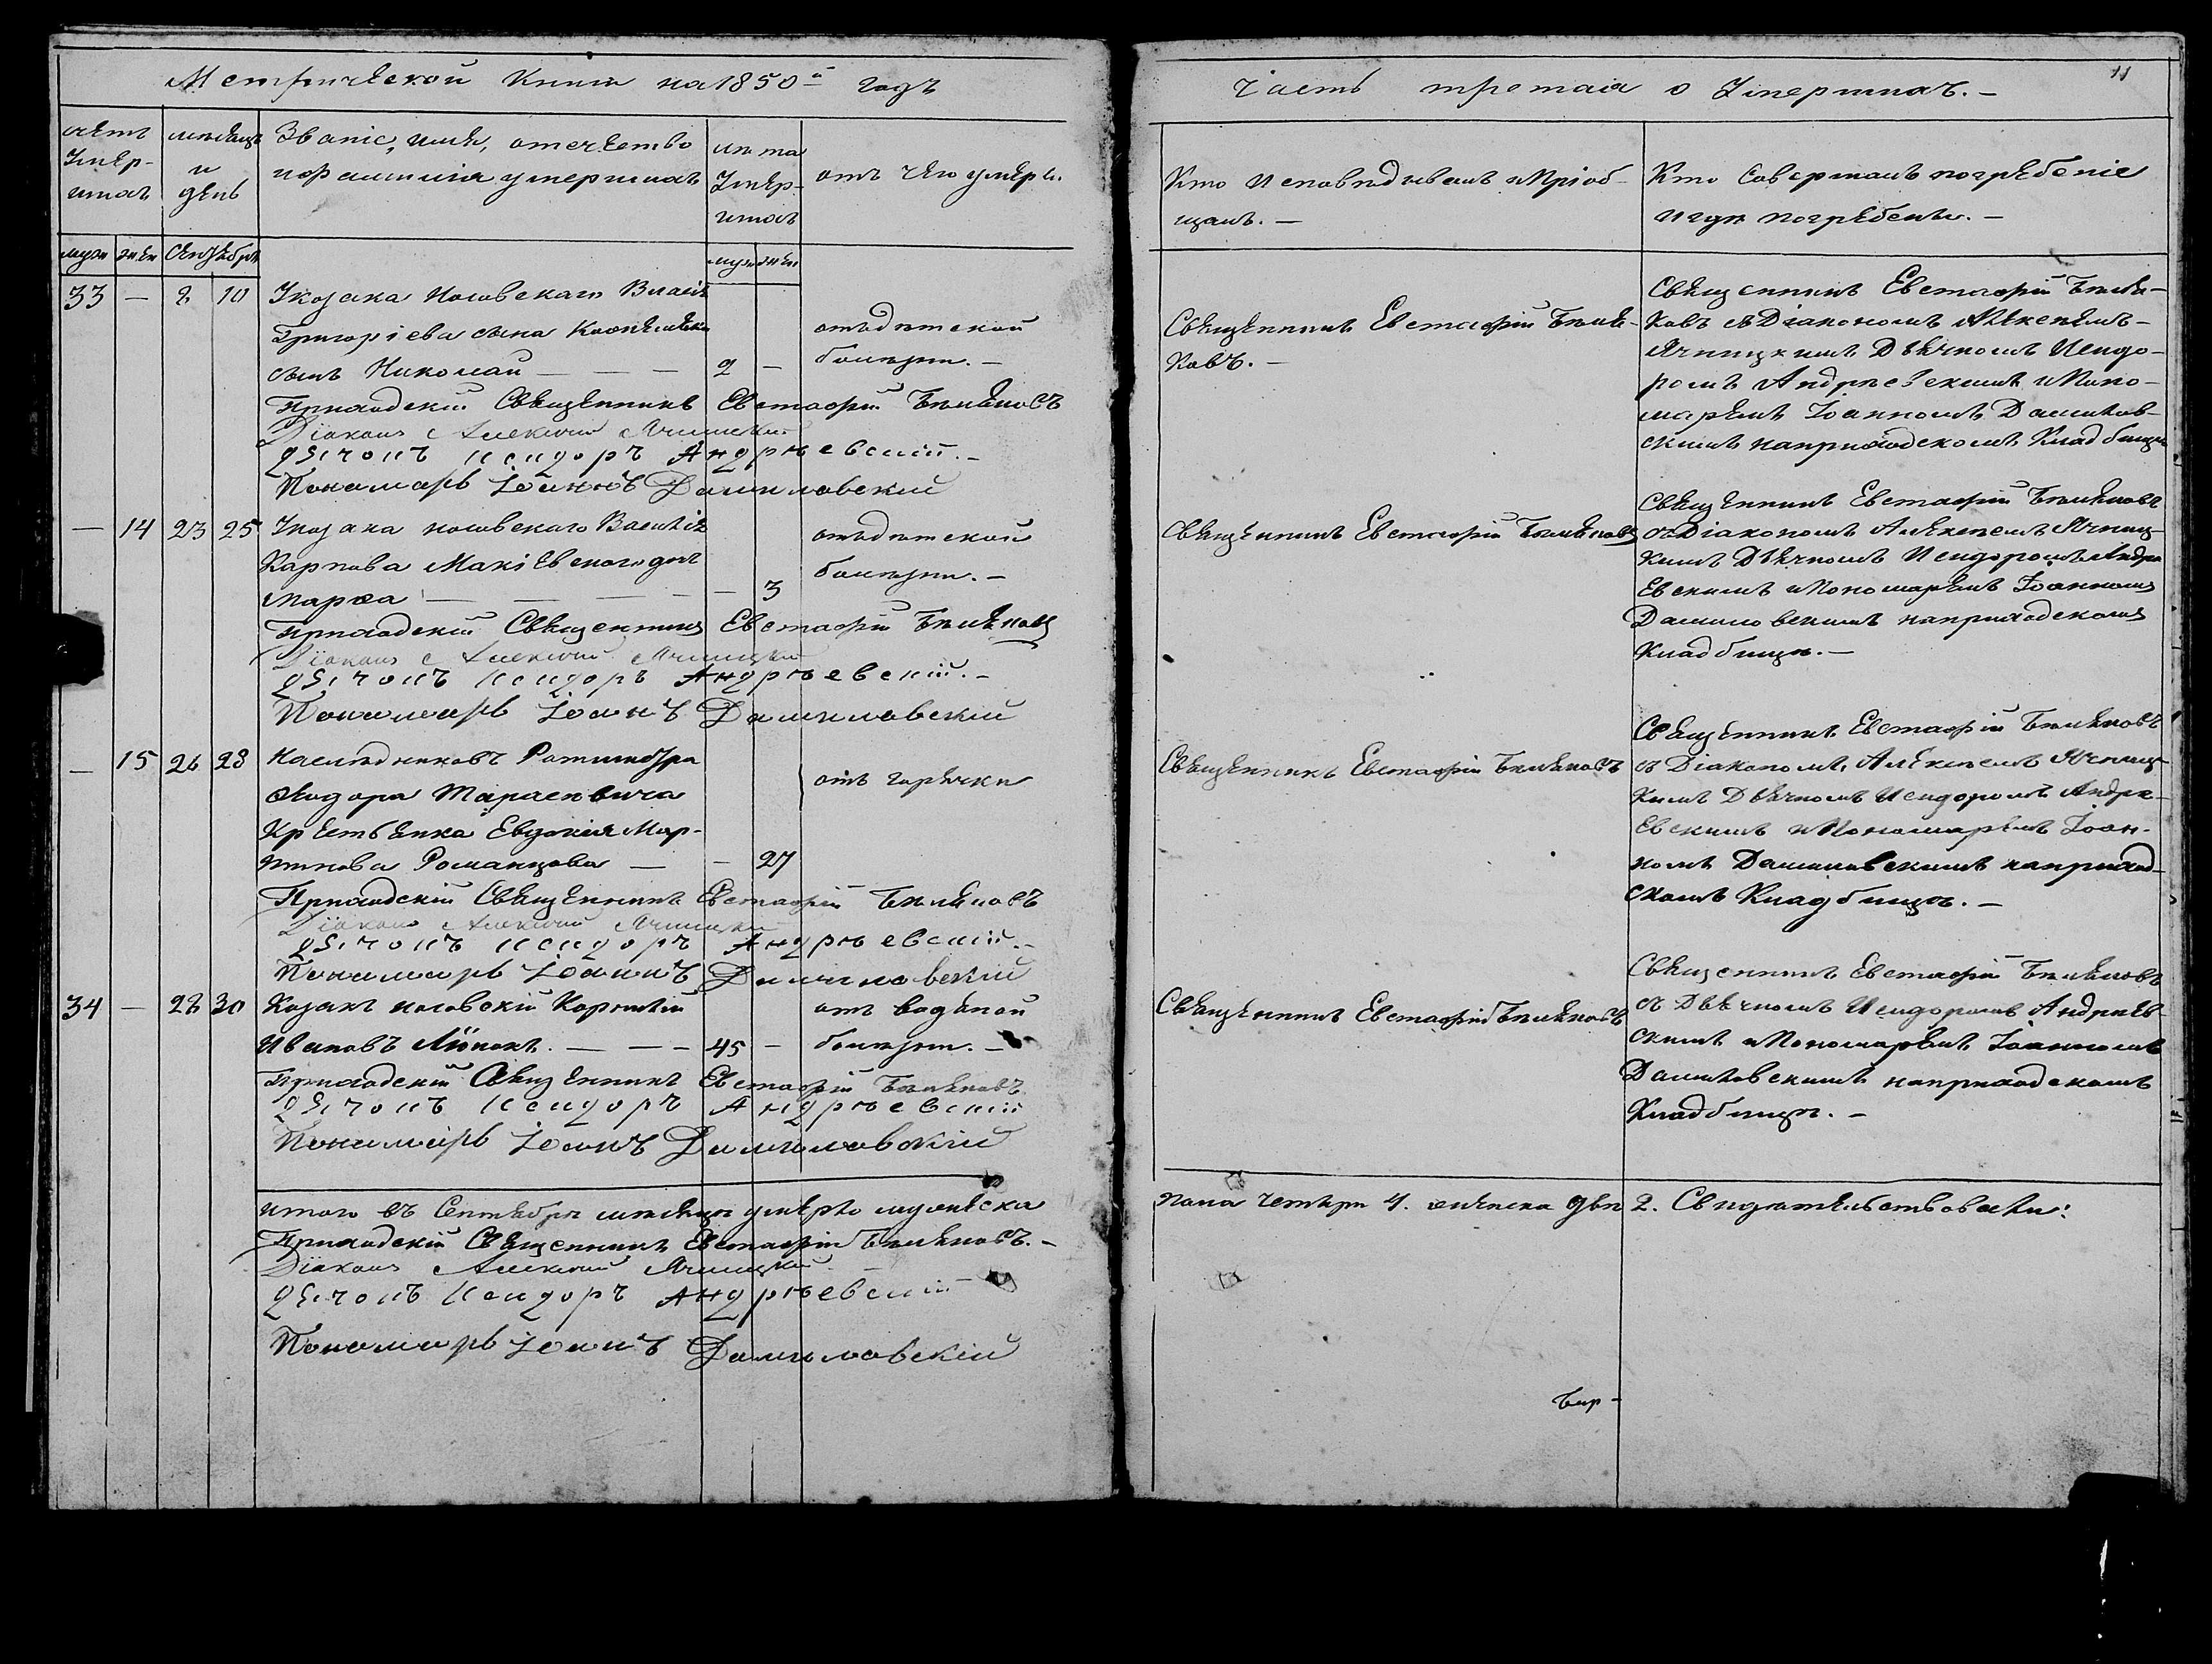 Метрической Книги на 1850й годъ
счетъ Умер-шихъ
мѣсяцъ и день
Званіе, имя, отечество и фамилія умершихъ
лѣта Умер-шихъ
отъ чего умеръ.
муж жен Сентября
муж жен
33 — 8 10 У козака Носовскаго Василія
Григоріева сына
сынъ Николай — — — 2 —
отъ дѣтской
болѣзни. —
Приходскій Священникъ Евстафій Бѣляковъ
Діаконъ Алексій Ячницкій
Дьячокъ Исидоръ Андріевскій. —
Пономарь Іоаннъ Даниловскій
— 14 23 25 У козака носовскаго Василія
Карпова Макіевскаго дочь
Марѳа — — — — — 3
отъ дѣтской
болѣзни. —
Приходскій Священникъ Евстафій Бѣляковъ
Діаконъ Алексій Ячницкій
Дьячокъ Исидоръ Андріевскій. —
Пономарь Іоаннъ Даниловскій
— 15 26 28 Наслѣдниковъ Ротмистра
Ѳиодора Тарасевича
Крестьянка Евдокія Мар-
тинова Романцова — — 27
отъ горячки
Приходскій Священникъ Евстафій Бѣляковъ
Діаконъ Алексій Ячницкій
Дьячокъ Исидоръ Андріевскій. —
Пономарь Іоаннъ Даниловскій
34 — 28 30 Козакъ носовскій Корнилій
Ивановъ — — — 45 —
отъ водяной
болѣзни. —
Приходскій Священникъ Евстафій Бѣляковъ
Дьячокъ Исидоръ Андріевскій
Пономарь Іоаннъ Даниловскій
итого въ Сентябрѣ мѣсяцѣ умерло мужеска
Приходскій Священникъ Евстафій Бѣляковъ. —
Діаконъ Алексій Ячницкій
Дьячокъ Исидоръ Андріевскій
Пономарь Іоаннъ Даниловскій
11
Часть третая о Умершихъ. —
Кто Исповѣдывалъ и Пріоб-
щалъ. —
Кто Совершалъ погребеніе
и гдѣ погребены. —
Священникъ Евстафій Бѣля-
ковъ. —
Священникъ Евстафій Бѣля-
ковъ съ Діакономъ Алексѣемъ
Ячницкимъ Дьячкомъ Исидо-
ромъ Андріевскимъ и Поно-
маремъ Іоанномъ Данилов-
скимъ на приходскомъ Кладбищѣ
Священникъ Евстафій Бѣляковъ
Священникъ Евстафій Бѣляковъ
съ Діакономъ Алексѣемъ Ячниц-
кимъ Дьячкомъ Исидоромъ Андрі-
евскимъ и Пономаремъ Іоанномъ
Даниловскимъ на приходскомъ
Кладбищѣ. —
Священникъ Евстафій Бѣляковъ
Священникъ Евстафій Бѣляковъ
съ Діакономъ Алексѣемъ Ячниц-
кимъ Дьячкомъ Исидоромъ Андрі-
евскимъ и Пономаремъ Іоан-
номъ Даниловскимъ на приход-
скомъ Кладбищѣ. —
Священникъ Евстафій Бѣляковъ
Священникъ Евстафій Бѣляковъ
съ Дьячкомъ Исидоромъ Андріев-
скимъ и Пономаремъ Іоанномъ
Даниловскимъ на приходскомъ
Кладбищѣ. —
пола четыри 4. женска двѣ 2. Свидѣтельствовали: